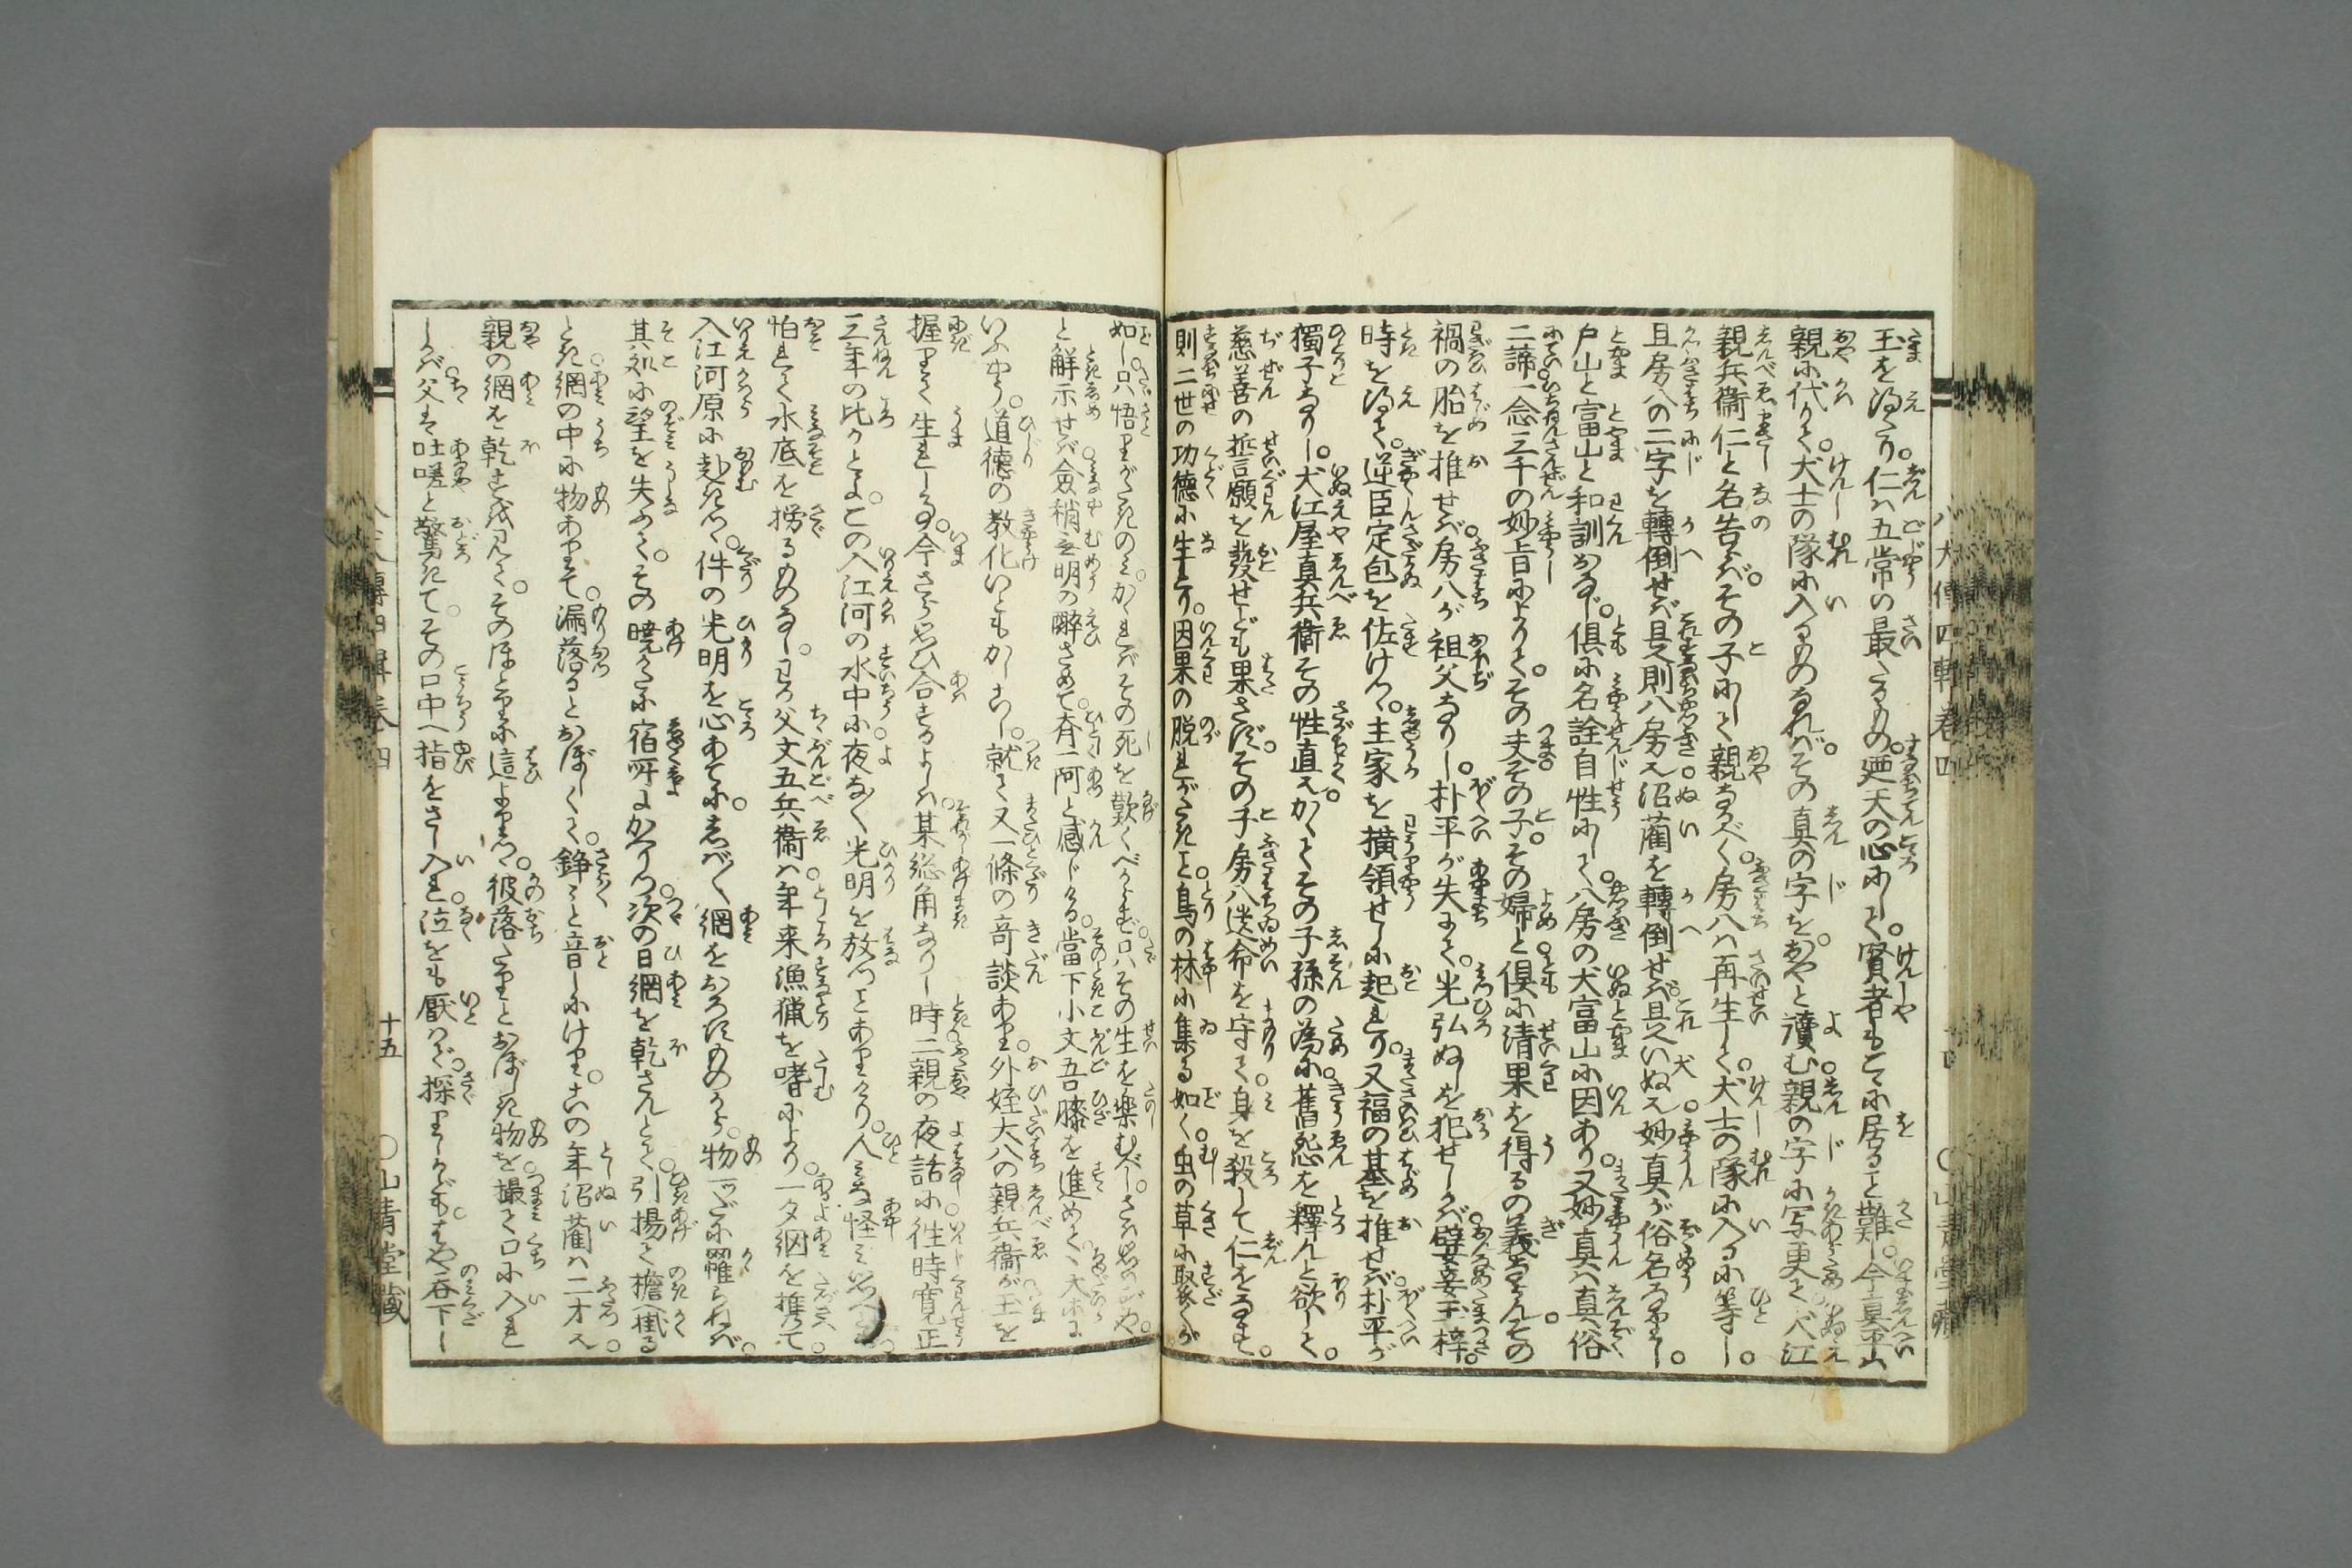 玉を得たり。仁は五常の最たるもの。廼天の心にして。賢者もこゝに居ること難し。今真平山
親に代りて。犬士の隊に入るものなれば。その真の字を。おやと讀む親の字に写更て。犬江
親兵衞仁と名告らば。その子にして親なるべく。房八は再生して。犬士の隊に入るに等し。
且房八の二字を轉倒せば。是則八房なり。沼藺を轉倒せば。是いぬなり。妙真が俗名なりし。
戸山と富山と和訓おなじ。倶に名詮自性にして。八房の犬富山に因あり。又妙真は真俗
二諦一念三千の妙旨によりて。その夫その子。その婦と倶に。清果を得るの義なるべし。その
禍の胎を推せば。房八が祖父なりし。朴平が失にて。光弘ぬしを犯せしかば。嬖妾玉梓。
時を得て。逆臣定包を佐けつゝ。主家を横領せしに起れり。又福の基を推せば。朴平が
獨子なりし。犬江屋真兵衞その性直なり。かくてその子孫の為に。舊怨を釋んと欲して。
慈善の誓願を發せども果さず。その子房八遺命を守て。身を殺して仁をなせり。
則二世の功德に生れたり。因果の脱れがたきこと。鳥の林に集る如く。虫の草に聚くが
如し。只悟りがたきのみ。かゝればその死を歎くべからず。只その生を樂むべし。さは思はずや。
と解示せば。僉稍無明の醉さめて。斉一阿と感じける。當下小文吾膝を進めて、大に
いふやう。道德の教化いともかしこし。就て又一條の奇談あり。外姪大八の親兵衞が玉を
握りて生れしも。今さら思ひ合するよしは。某総角なりし時。二親の夜話に。往時寛正
三年の比かとよ。この入江河の水中に。夜な〳〵光明を放つことありけり。人みな怪み思へども。
怕れて水底を撈るものなし。わが父文五兵衞は。年来漁猟を嗜により。一夕網を携て
入江河原に赴きつゝ。件の光明を心あてに。しば〳〵網をおろすものから。物一ツだに罹らねば。
其処に望を失ひて。その曉がたに宿所にかへりつ。次の日網を乾さんとて。引揚て擔へ掛る
とき。網の中に物ありて。漏落るとおぼしくて。錚々と音しにけり。この年沼藺は二才なり。
親の網を乾すを見て。そのほとりに這よりつゝ。彼落たりとおぼしき物を。撮て口に入れ
しかば。父は吐嗟と驚きて。その口中へ指をさし入れ。泣をも厭はで。探りしかども。はや呑下し
八犬傳四輯卷四
十四
○山青堂藏
八犬傳四輯卷四
十五
○山青堂藏